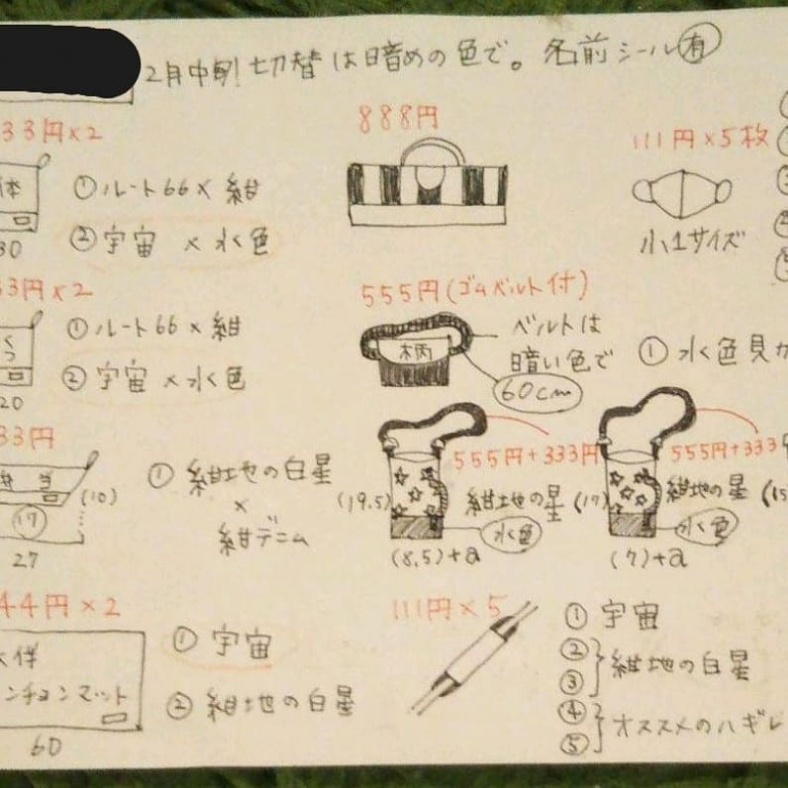 2月中旬! 切替は暗めの色で。名前シール有
33円×2
888円
111円×5枚
体
①ルート66×紺
②宇宙×水色
30
小1サイズ
33円×2
555円(ゴムベルト付)
くつ
①ルート66×紺
②宇宙×水色
20
柄
ベルトは
暗い色で
60cm
①水色見
33円
弁当
(10)
17
27
①紺地の白星
×
紺デニム
555円+333円
(19.5)
紺地の星
水色
(8.5)+a
555円+333
(17)
紺地の星
(15
水色
(7)+a
44円×2
大伴
ンチョンマット
60
①宇宙
②紺地の白星
111円×5
①宇宙
②
③
紺地の白星
④
⑤
オススメのハギレ